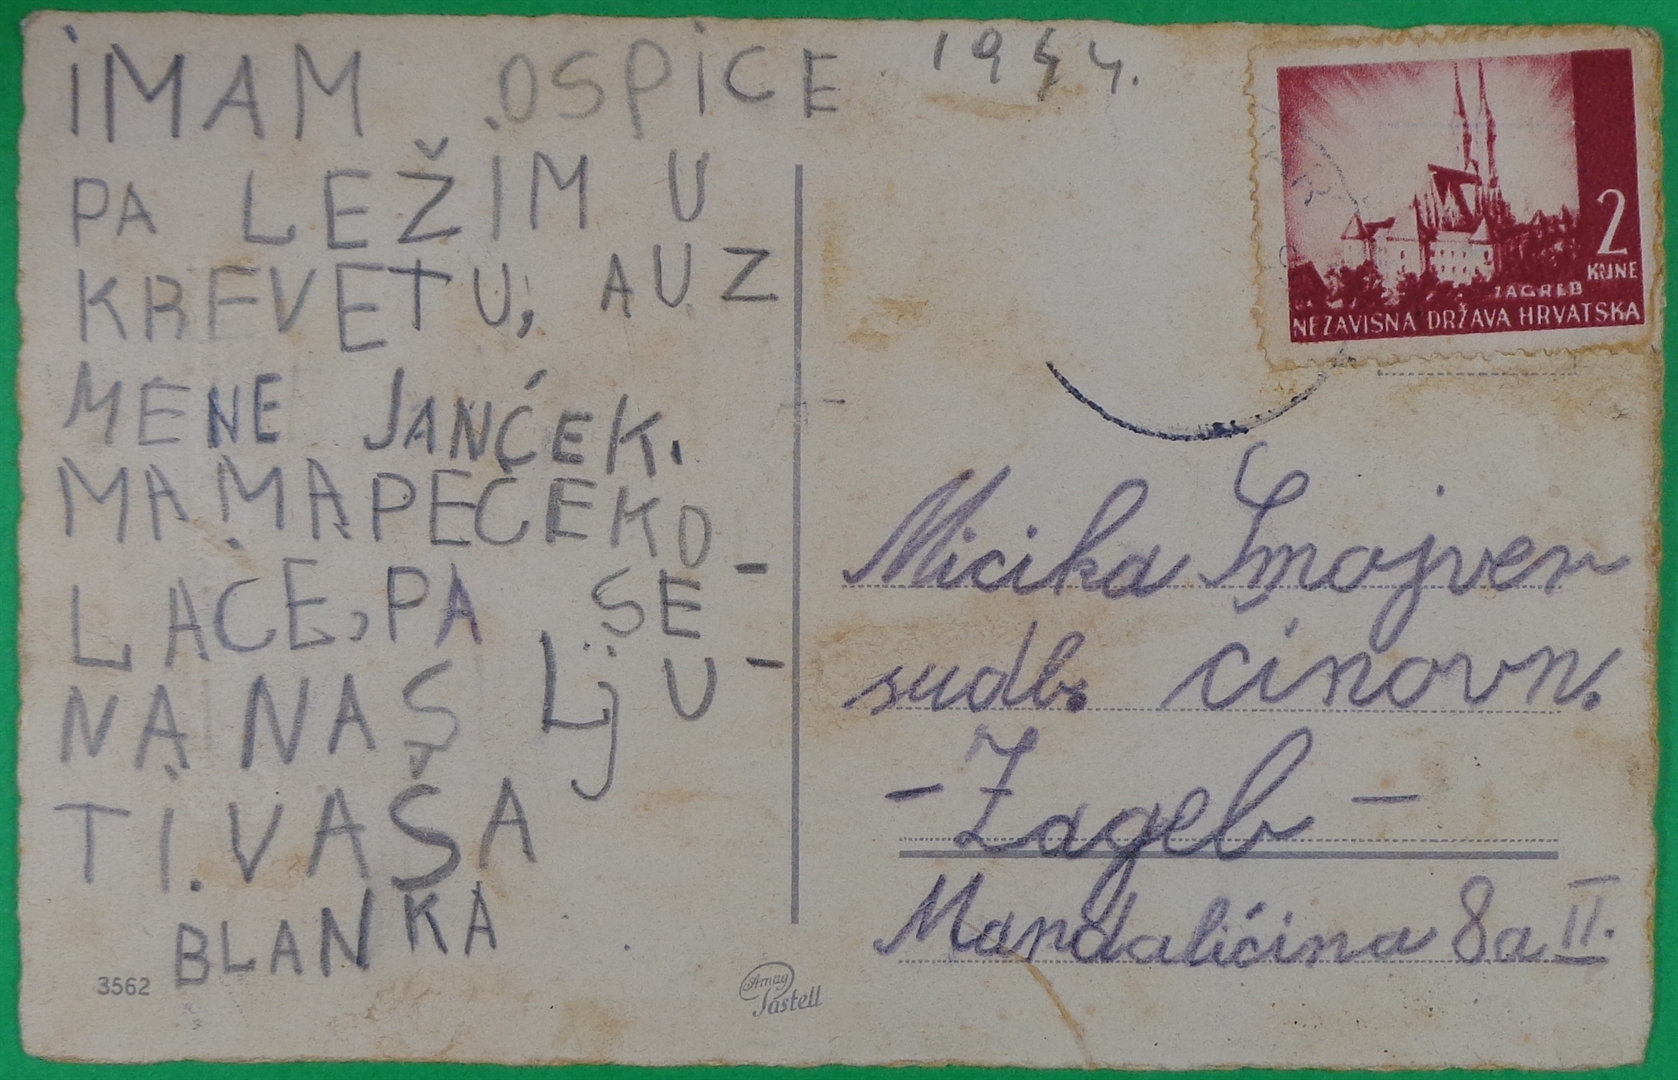 IMAM OSPICE 1944.
PA LEŽIM U
KREVETU, A UZ
MENE JANĆEK.
MAMA PEČE KO
LAČE, PA SE -
NA NAS LJU -
TI. VAŠA
BLANKA
3562
Amag
Pastell
2
KUNE
ZAGREB
NEZAVISNA DRŽAVA HRVATSKA
Micika Smojver
sudb. činovn.
- Zageb -
Mandalićina 8a II.